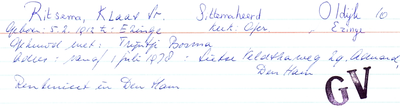 Ritsema, Klaas Sr. Sittemaheerd Oldijk 10
Geboren: 5.2.1912 te: Ezinge kerk: Ger. Ezinge
Gehuwd met: Trijntje Bosma
adres: vanaf 1 juli 1978: Pieter Veldstraweg 29. Aduard,
Den Ham
Rentenier in Den Ham
GV